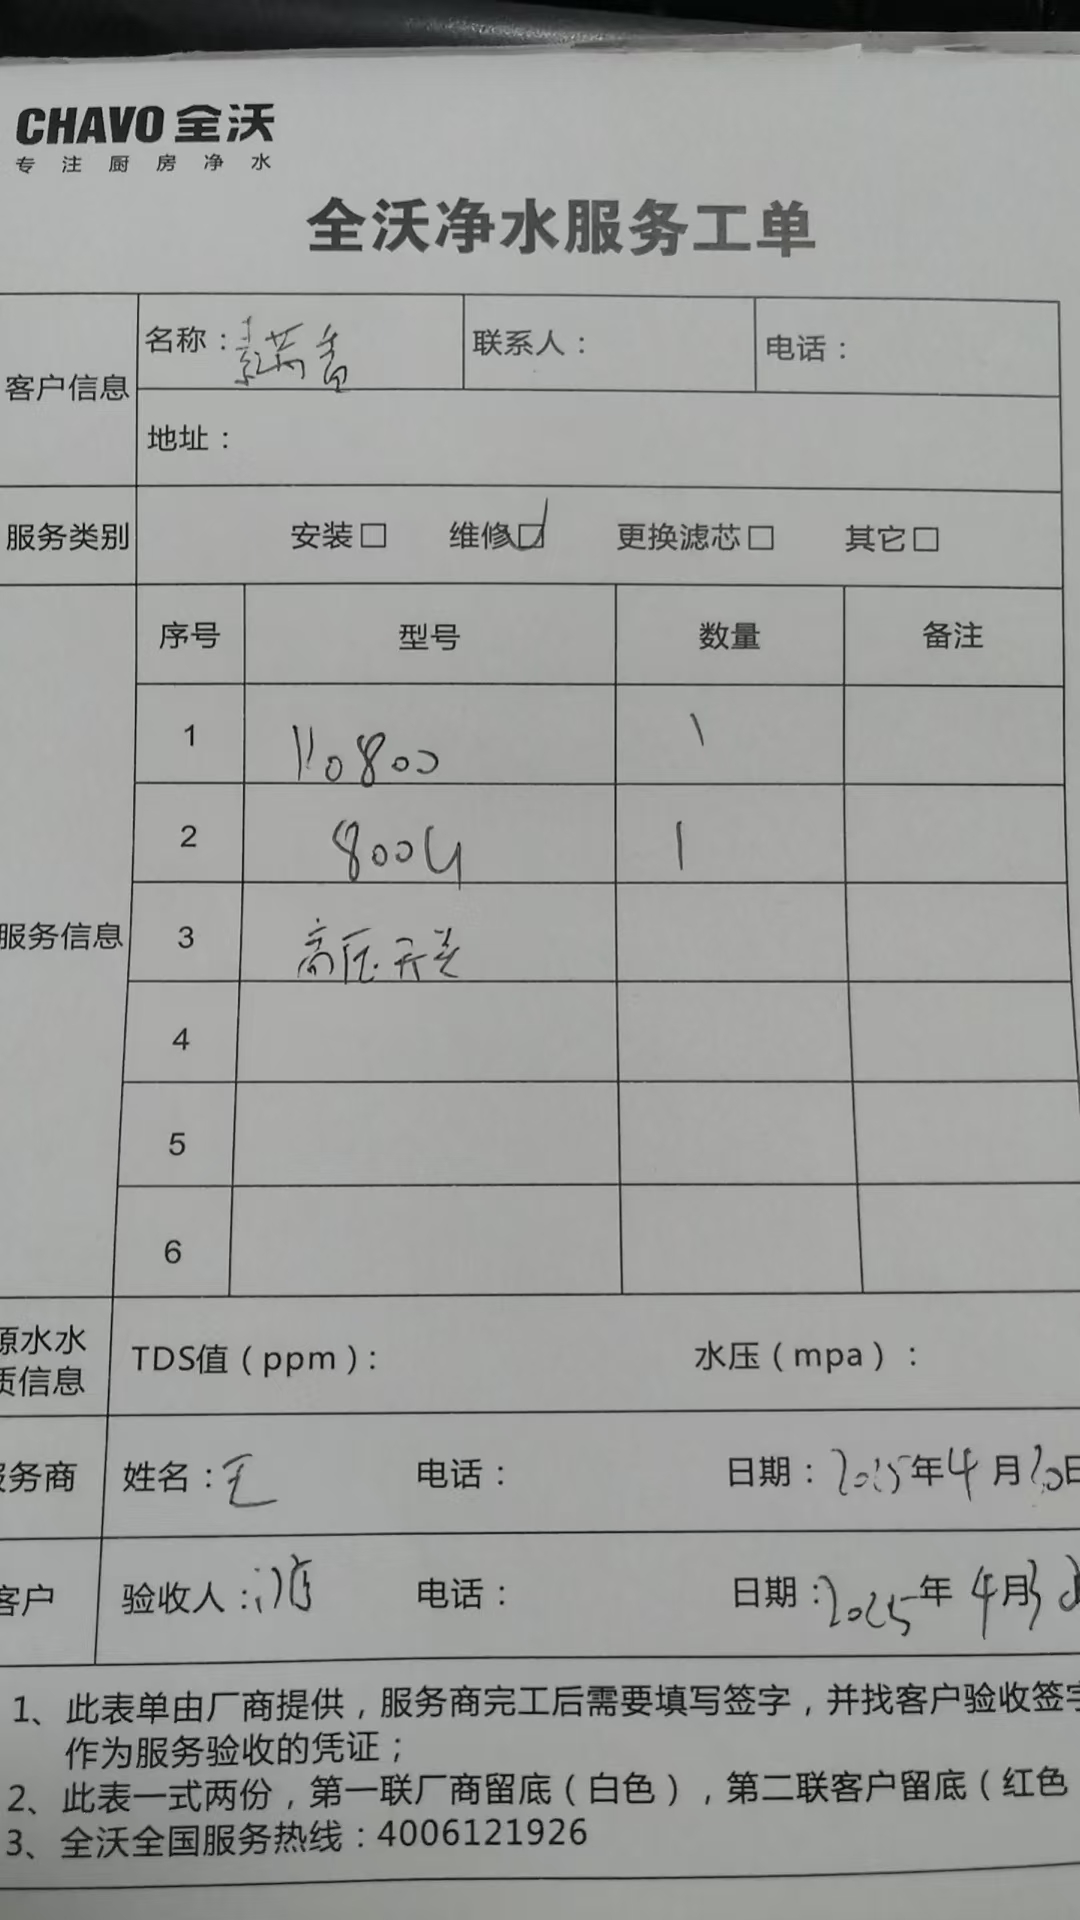 CHAVO 全沃
专注厨房净水
全沃净水服务工单
客户信息 名称：素满香 联系人： 电话：
地址：
服务类别 安装□ 维修□ 更换滤芯□ 其它□
服务信息
序号 型号 数量 备注
1 1
2 800G 1
3 高压开关
4
5
6
源水水质信息 TDS值（ppm）： 水压（mpa）：
服务商 姓名：王 电话： 日期：2025年4月30日
客户 验收人： 电话： 日期：2025年4月
1、此表单由厂商提供，服务商完工后需要填写签字，并找客户验收签字
作为服务验收的凭证；
2、此表一式两份，第一联厂商留底（白色），第二联客户留底（红色
3、全沃全国服务热线：4006121926